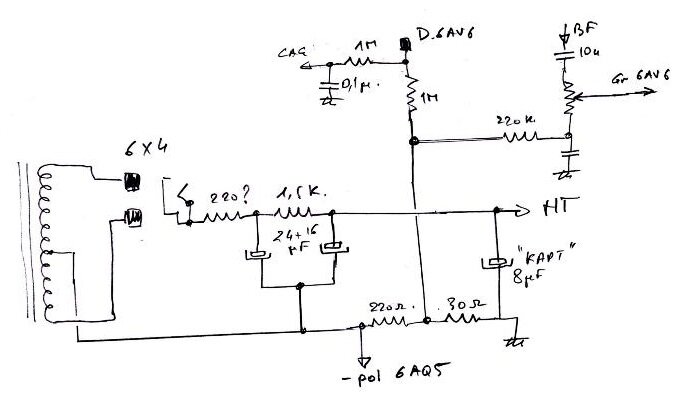 D.6AV6
BF
CAG
1M
10n
0,1µ.
1M
Gr 6AV6
220K
6X4
220?
1,5K.
HT
24+16
µF
"KAPT"
8µF
220Ω.
30Ω
-pol 6AQ5